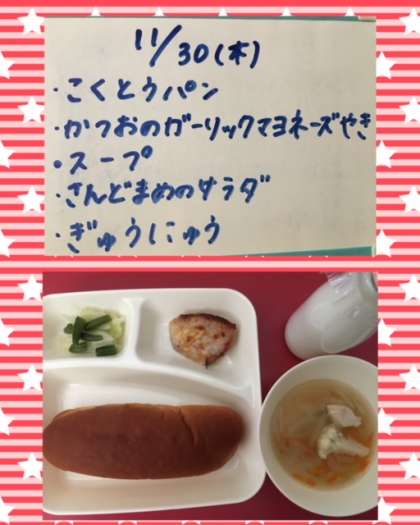 11/30(木)
・こくとうパン
・かつおのガーリックマヨネーズやき
・スープ
・さんどまめのサラダ
・ぎゅうにゅう